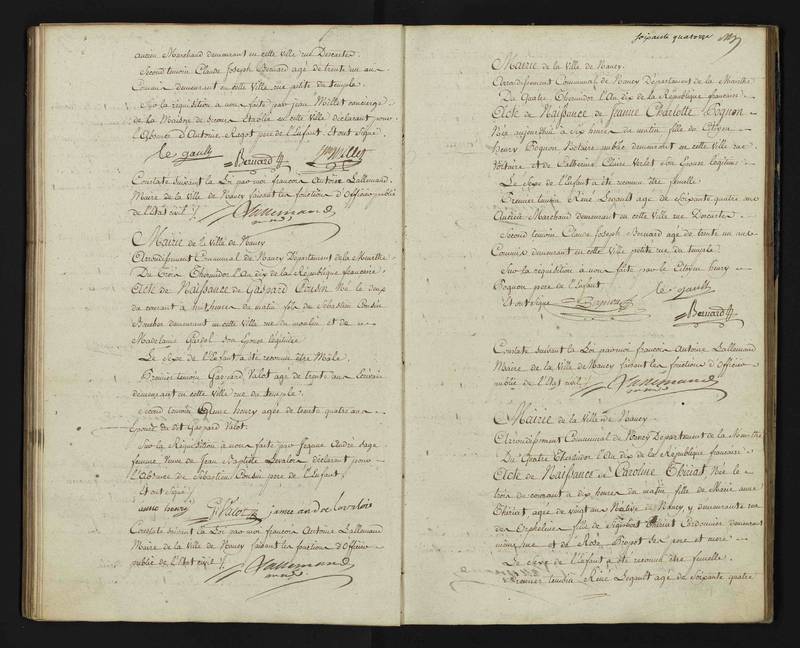 ancien Marchand demeurant en cette ville rue Descartes.
Second temoin Claude Joseph Bernard agé de trente un an
Commis demeurant en cette Ville rue petite du temple.
Sur la réquisition à nous faite par jean Millet concierge
de la Maison de secours Etablie en cette ville déclarant pour
l'absence d'Antoine pere de l'Enfant. Et ont Signé
le gault Bernard JnMillet
Constaté suivant la Loi par moi françois Antoine Lallemand
Maire de la Ville de Nancy faisant les fonctions d'Officier public
de l'Etat civil /.
Lallemand
Mairie de la Ville de Nancy
Arrondissement Communal de Nancy Département de la Meurthe
Du trois Thermidor l'An dix de la République française
Acte de Naissance de Gaspard Cousin Né le deux
du courant à huit heures du matin fils de Sébastien Cousin
demeurant en cette Ville rue du moulin et de
Madelaine Gardel son Epouse légitime
Le Sexe de l'Enfant a été reconnu être Mâle.
Premier temoin Gaspard Valot agé de trente ans
demeurant en cette Ville rue du temple.
Second temoin henry agée de trente quatre ans
Epouse du dit Gaspard Valot.
Sur la Réquisition à nous faite par Jeanne André Sage
femme Veuve de Jean Baptiste Levalois déclarant pour
l'Absence de Sébastien Cousin pere de l'Enfant
Et ont Signé
anne henry G. Valot
Constaté suivant la Loi par moi françois Antoine Lallemand
Maire de la Ville de Nancy faisant les fonctions d'Officier
public de l'Etat civil /.
Lallemand
soixante quatorze
Mairie de la Ville de Nancy.
Arrondissement Communal de Nancy Département de la Meurthe
Du Quatre Thermidor l'An dix de la République française
Acte de Naissance de Jeanne Charlotte Pognon
Née aujourd'hui à dix heures du matin fille du Citoyen
henry Pognon Notaire public demeurant en cette Ville rue
Voltaire et de Catherine Claire Verlet son Epouse légitime
Le Sexe de l'Enfant a été reconnu être femelle.
Premier temoin René Legault agé de soixante quatre ans
Ancien Marchand demeurant en cette Ville rue Descartes.
Second temoin Claude Joseph Bernard agé de trente un ans
Commis demeurant en cette Ville petite rue du temple.
Sur la réquisition à nous faite par le Citoyen henry
Pognon pere de l'Enfant
Et ont signé Pognon le gault
Bernard
Constaté suivant la Loi par moi françois Antoine Lallemand
Maire de la Ville de Nancy faisant les fonctions d'Officier
public de l'Etat civil /.
Lallemand
Mairie de la Ville de Nancy
Arrondissement Communal de Nancy Département de la Meurthe
Du Quatre Thermidor l'An dix de la République française
Acte de Naissance de Caroline Thiriat Née le
trois du courant à dix heures du matin fille de Marie anne
Thiriat agée de vingt ans Native de Nancy, y demeurante rue
des Orphelines fille de Thiriat Cordonnier demeurant
même rue et de Rose ses pere et mere
Le Sexe de l'Enfant a été reconnu être femelle.
Premier temoin René Legault agé de Soixante quatre